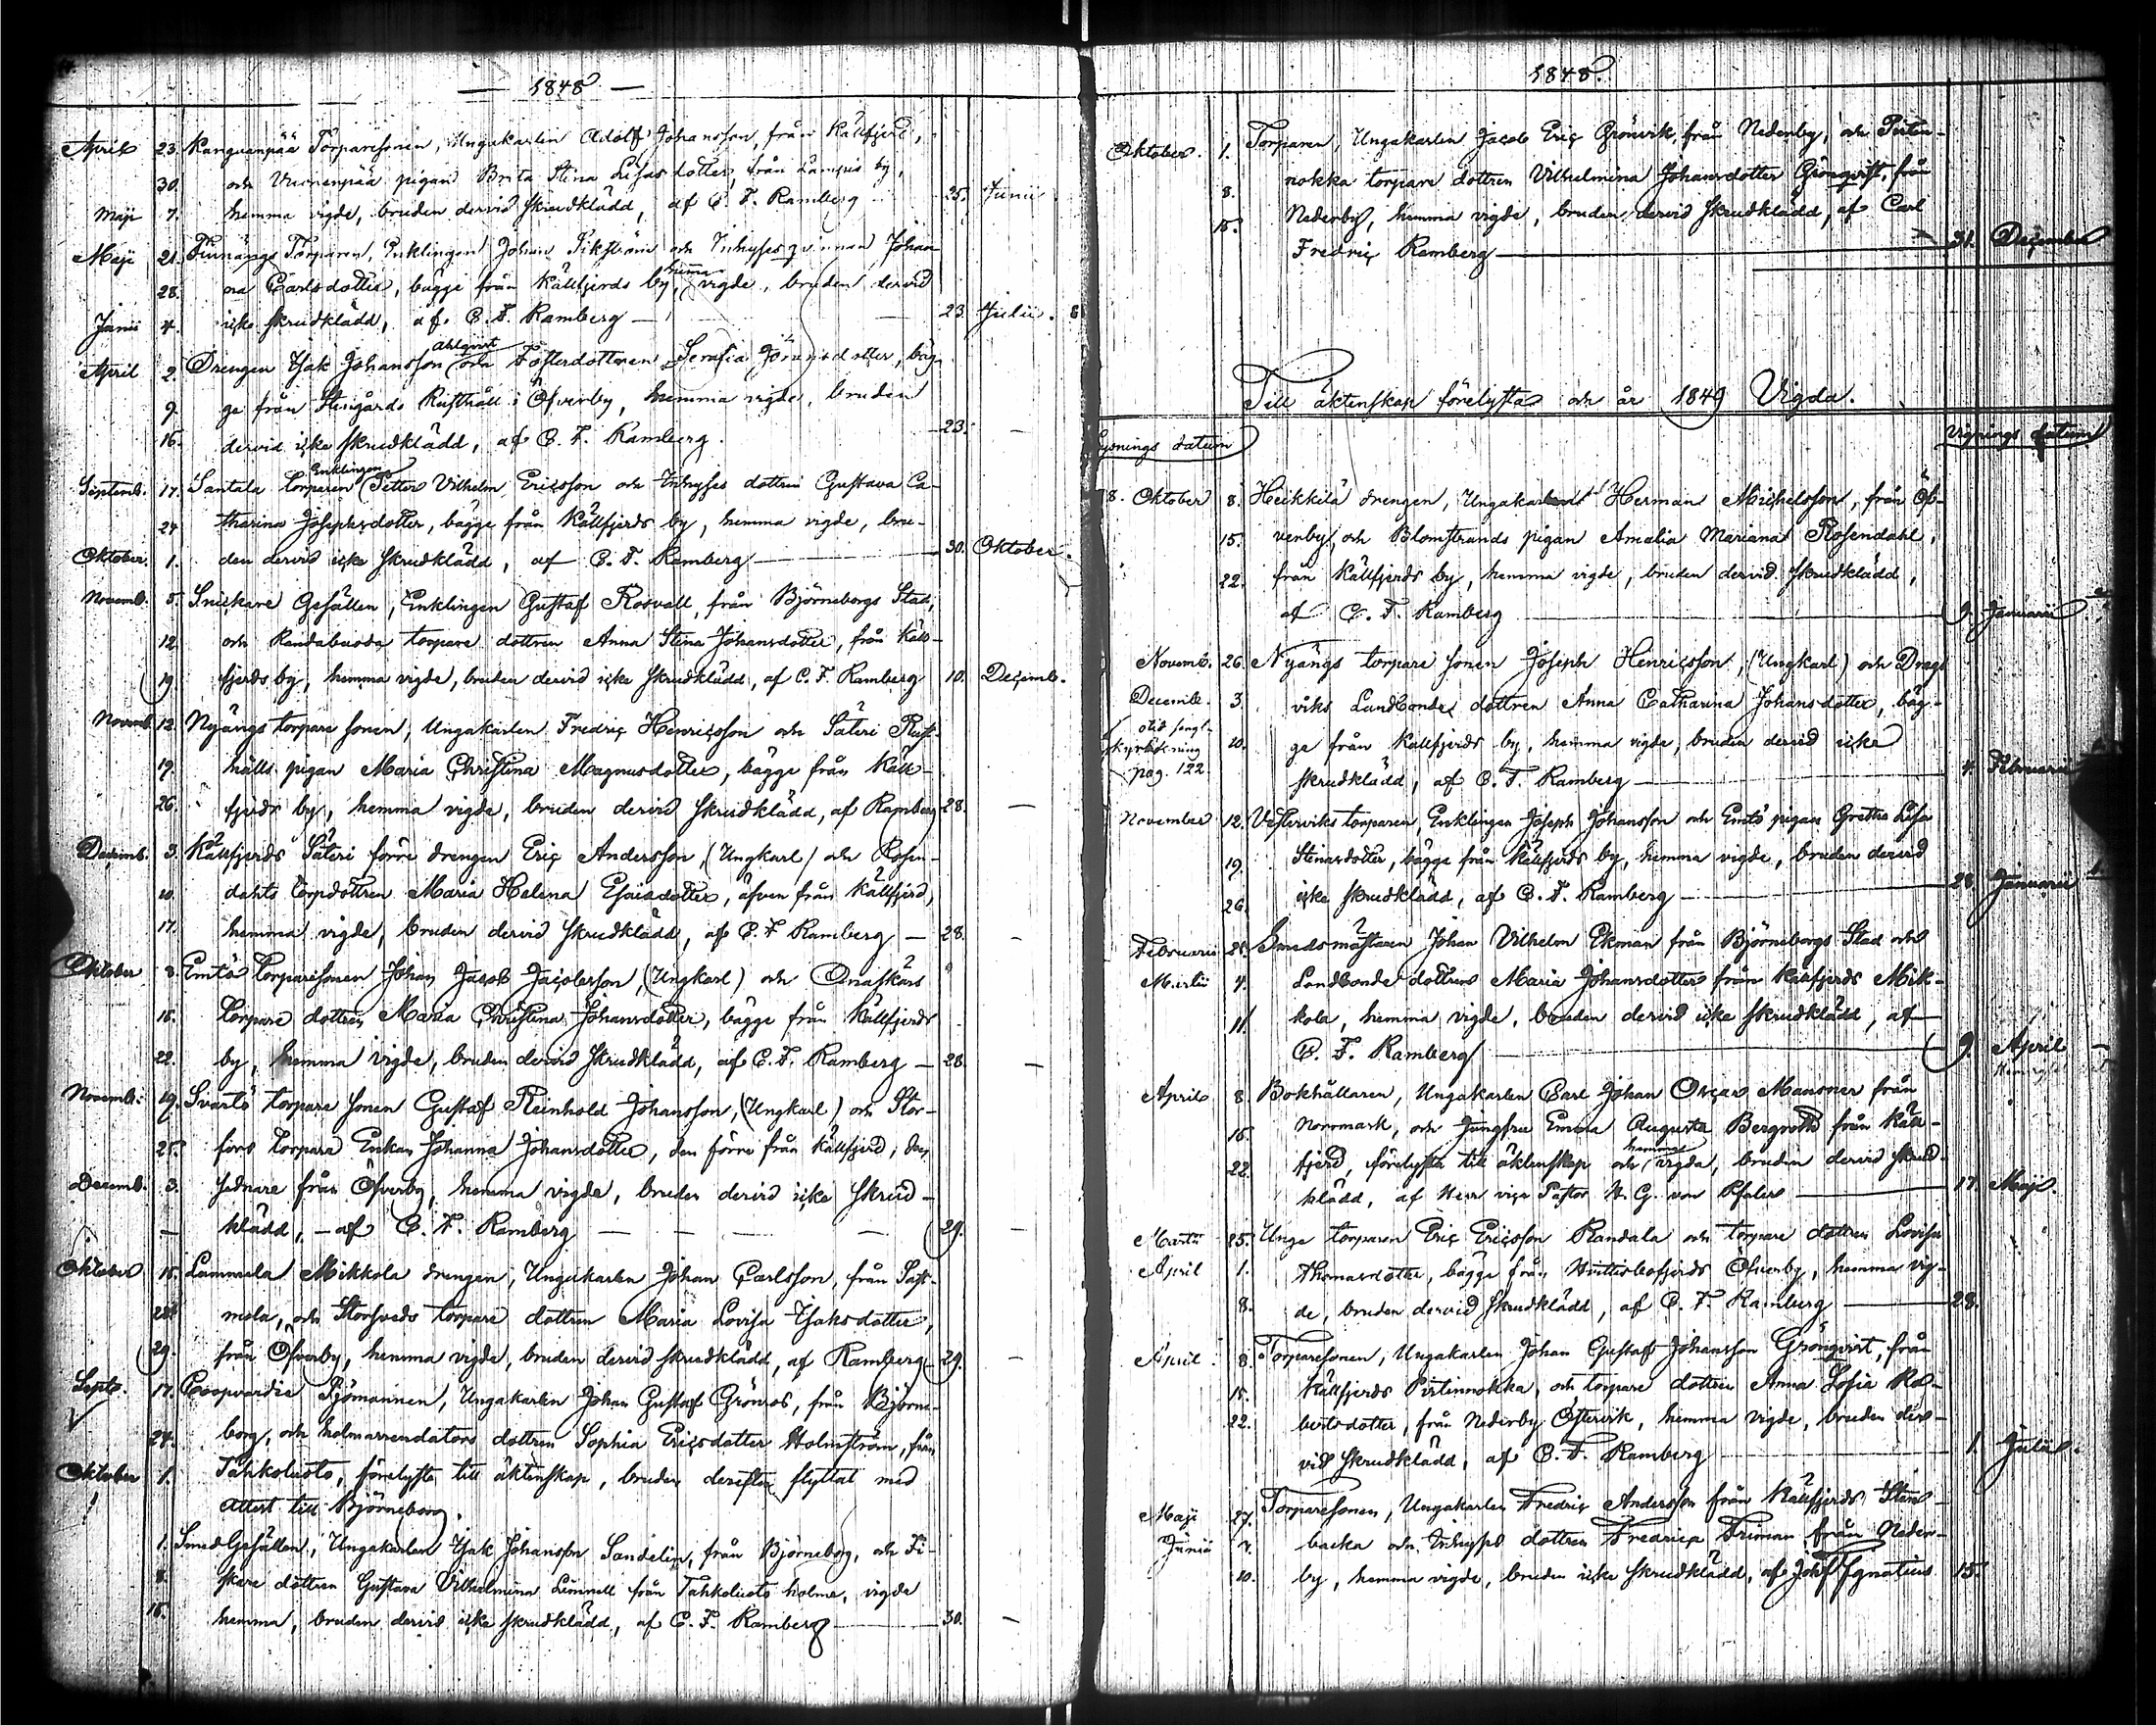 1848
April 23. Kanguenpää Torparesonen, Ungakarlen Adolf Johansson, från Källfjerd,
30. och pigan Brita Stina Lisasdotter, från Lampis by,
Maji 7. hemma vigde, bruden dervid skrudklädd, af C. F. Ramberg 25. Junii
Maji 21. Torparen, Enklingen Johan Sikström och Inhyses qvinnan Johan-
28. na Carlsdotter, bägge från Källfjerds by, hemma vigde, bruden dervid
Junii 4. icke skrudklädd, af C. F. Ramberg — 23. Julii.
April 2. Drengen Isak Johansson Ahlqvist och Fosterdottren Serafia dotter, bäg-
9. ge från Stengårds Rusthåll i Öfverby, hemma vigde, bruden
16. dervid icke skrudklädd, af C. F. Ramberg. 23. —
Septemb. 17. Santala torparen Enklingen Petter Vilhelm Ericsson och Inhyses dottren Gustava Ca-
24. tharina Josephsdotter, bägge från Källfjerds by, hemma vigde, bru-
Oktober. 1. den dervid icke skrudklädd, af C. F. Ramberg — 30. Oktober.
Novemb. 5. Snickare Gesällen, Enklingen Gustaf Rosvall, från Björneborgs Stad,
12. och torpare dottren Anna Stina Johansdotter, från Käll-
19. fjerds by, hemma vigde, bruden dervid icke skrudklädd, af C. F. Ramberg 10. Decemb.
Novemb. 12. Nyängs torpare sonen, Ungakarlen Fredric Henricsson och Säteri Rust-
19. hålls pigan Maria Christina Magnusdotter, bägge från Käll-
26. fjerds by, hemma vigde, bruden dervid skrudklädd, af Ramberg 28. —
Decemb. 3. Källfjerds Säteri förre drengen Eric Andersson, (Ungkarl) och Rosen-
10. dahls torpdottren Maria Helena Esaiadotter, äfven från Källfjerd,
17. hemma vigde, bruden dervid skrudklädd, af C. F. Ramberg — 28. —
Oktober 8. Emtö torparesonen Johan Jacob Jacobsson, (Ungkarl) och Onaskärs
15. torpare dottren Maria Christina Johansdotter, bägge från Källfjerds
22. by, hemma vigde, bruden dervid skrudklädd, af C. F. Ramberg — 28. —
Novemb. 19. Svartö torpare sonen Gustaf Reinhold Johansson, (Ungkarl) och Stor-
25. fors torpare Enkan Johanna Johansdotter, den förre från Källfjerd, den
Decemb. 3. sednare från Öfverby, hemma vigde, bruden dervid icke skrud-
— klädd, — af C. F. Ramberg — — — 29. —
Oktober 15. Lammela Mikkola drengen, Ungakarlen Johan Carlsson, från Sast-
22. mola, och Storsveds torpare dottren Maria Lovisa Isaksdotter,
29. från Öfverby, hemma vigde, bruden dervid skrudklädd, af Ramberg 29. —
Septb. 17. Coopvardie Sjömannen, Ungakarlen Johan Gustaf Grönros, från Björne-
24. borg, och holmarrendators dottren Sophia Ericsdotter Holmström, från
Oktober 1. Tahkoluoto, förelyste till äktenskap, bruden derefter flyttat med
attest till Björneborg.
1. Smed Gesällen, Ungakarlen Isak Johansson Sandelin, från Björneborg, och Fi-
8. skare dottren Gustava Vilhelmina från Tahkoluoto holme, vigde
15. hemma, bruden dervid icke skrudklädd, af C. F. Ramberg 30. —
1848.
Oktober. 1. Torparen, Ungakarlen Jacob Eric Grönvik, från Nederby, och Pirtin-
8. nokka torpare dottren Vilhelmina Johansdotter Grönqvist, från
15. Nederby, hemma vigde, bruden dervid skrudklädd, af Carl
Fredric Ramberg — 31. December
Till äktenskap förelysta och år 1849 Vigda.
Lysnings datum Vignings datum
Oktober 8. Heikkilä drengen, Ungakarlen Herman Michelsson, från Öf-
15. verby, och Blomstrands pigan Amalia Mariana Rosendahl,
22. från Källfjerds by, hemma vigde, bruden dervid skrudklädd,
af C. F. Ramberg — 9. Januarii
Novemb. 26. Nyängs torpare sonen Joseph Henricsson, (Ungkarl) och Drags
Decemb. 3. viks Landbonde dottren Anna Catharina Johansdotter, bäg-
10. ge från Källfjerds by, hemma vigde, bruden dervid icke
pag. 122. skrudklädd, af C. F. Ramberg — 4. Februarii
November 12. Vesterviks torparen, Enklingen Joseph Johansson och Emtö pigan Gretha Lisa
19. Stinasdotter, bägge från Källfjerds by, hemma vigde, bruden dervid
26. icke skrudklädd, af C. F. Ramberg — 28. Januarii
Februarii 25. Smedsmästaren Johan Vilhelm Ekman från Björneborgs Stad och
Martii 4. Landbonde dottren Maria Johansdotter från Källfjerds Mik-
11. kola, hemma vigde, bruden dervid icke skrudklädd, af
C. F. Ramberg — 9. April
April 8. Bokhållaren, Ungakarlen Carl Johan Oscar Mansner från
15. Norrmark, och Jungfru Emma Augusta Bergroth från Käll-
22. fjerd, förelyste till äktenskap och hemma vigda, bruden dervid skrud-
klädd, af Herr vice Pastor H. G. von Pfaler — 17. Maji.
Martii 25. Unge torparen Eric Ericsson Randala och torpare dottren Lovisa
April 1. Thomasdotter, bägge från Hvittisbofjerds Öfverby, hemma vig-
8. de, bruden dervid skrudklädd, af C. F. Ramberg — 28.
April 8. Torparesonen, Ungakarlen Johan Gustaf Johansson Grönqvist, från
15. Källfjerds Pirtinnokka, och torpare dottren Anna Sofia Ro-
22. bertsdotter, från Nederby Östervik, hemma vigde, bruden der-
vid skrudklädd, af C. F. Ramberg 1. Julii.
Maji 27. Torparesonen, Ungakarlen Fredric Andersson från Källfjerds
Junii backa och Inhyses dottren Fredrica Friman från Neder-
10. by, hemma vigde, bruden icke skrudklädd, af Ignatius 15.